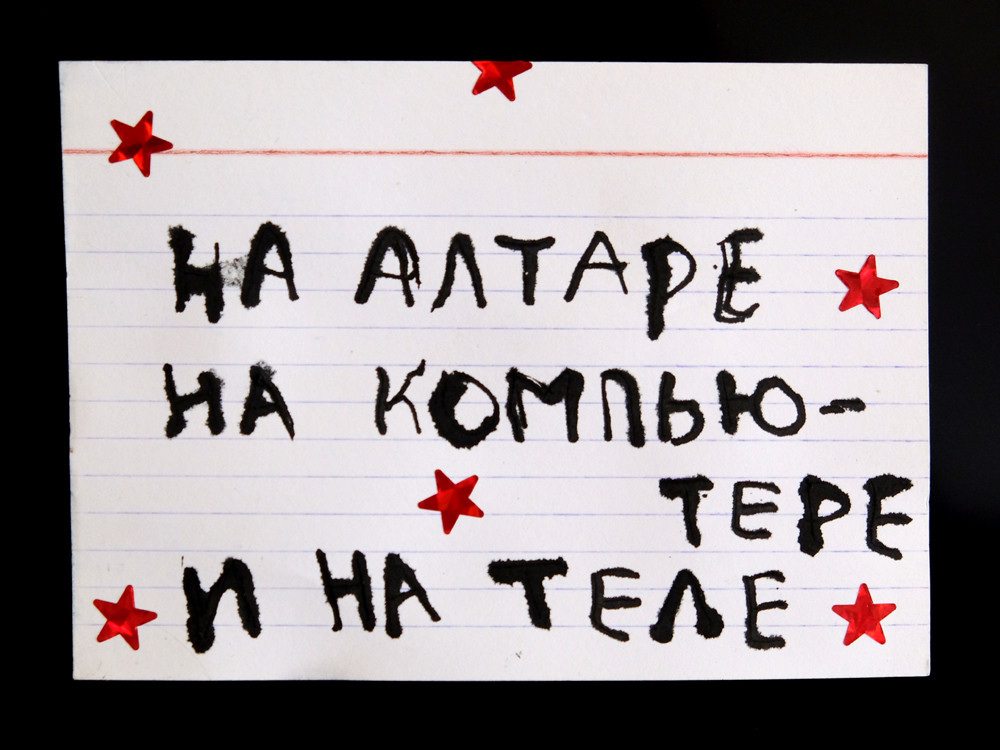 НА АЛТАРЕ
НА КОМПЬЮ-
ТЕРЕ
И НА ТЕЛЕ